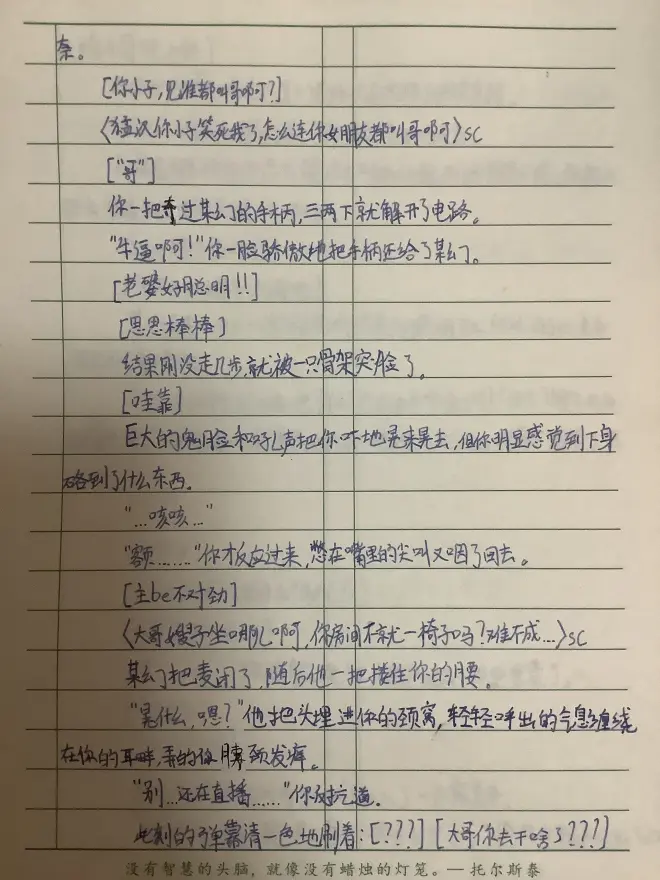 奈。
[你小子,见谁都叫哥啊?]
〈猛汉你小子笑死我了,怎么连你女朋友都叫哥啊〉SC
["哥"]
你一把夺过某幻的手柄,三两下就解开了电路。
"牛逼啊!"你一脸骄傲地把手柄还给了某幻。
[老婆好聪明!!]
[恩恩棒棒]
结果刚没走几步,就被一只骨架突脸了。
[哇靠]
巨大的鬼脸和吼声把你吓地晃来晃去,但你明显感觉到下身
硌到了什么东西。
"…咳咳…"
"额………"你才反应过来,憋在嘴里的尖叫又咽了回去。
[主be不对劲]
〈大哥嫂子坐哪儿啊,你房间不就一椅子吗?难不成…〉SC
某幻把麦闭了,随后他一把搂住你的腰。
"晃什么,嗯?"他把头埋进你的颈窝,轻轻呼出的气息缠绕
在你的耳畔,弄的你脖颈发痒。
"别…还在直播……"你反抗道。
此刻的弹幕清一色地刷着:[???] [大哥你去干啥了???]
没有智慧的头脑,就像没有蜡烛的灯笼。— 托尔斯泰